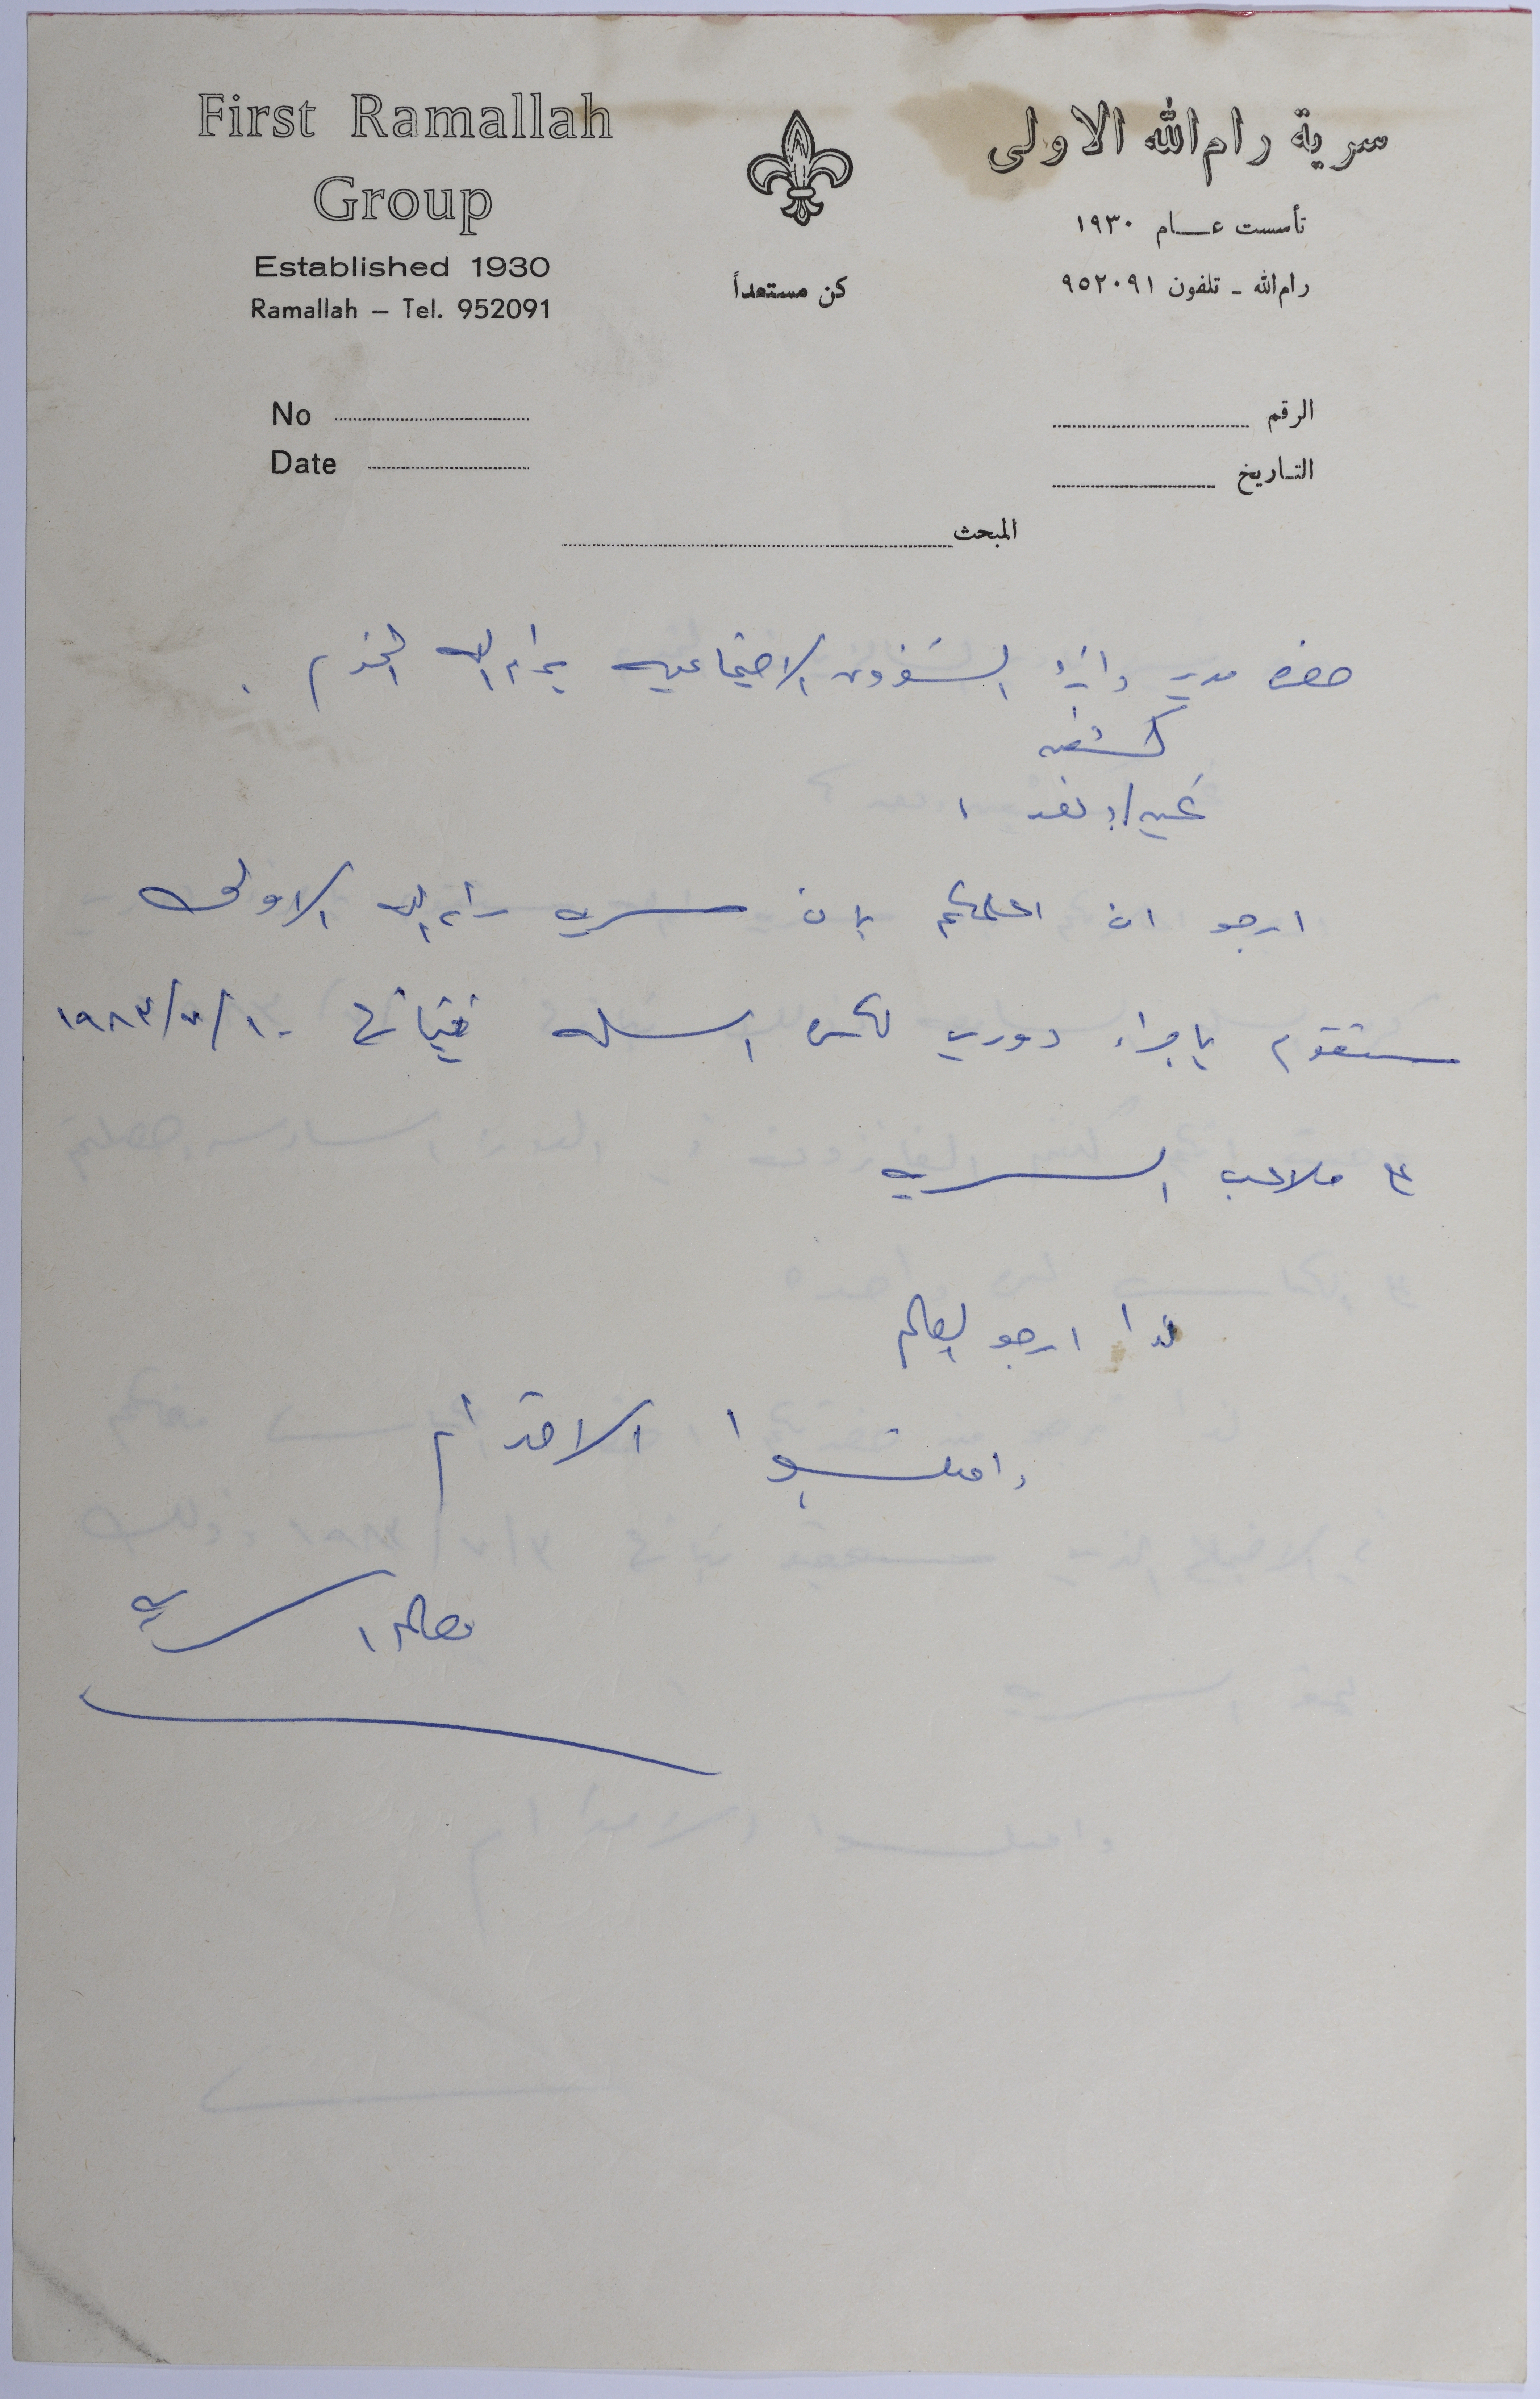 First Ramallah
Group
Established 1930
Ramallah – Tel. 952091
كن مستعداً
سرية رام الله الاولى
تأسست عام ١٩٣٠
رام الله - تلفون ٩٥٢٠٩١
No
Date
الرقم
التاريخ
المبحث
حضرة مدير دائرة الشؤون الاجتماعيه برام الله المحترم .
تحيه وبعد ،
ارجو ان اعلمكم بان سرية رام الله الاولى
ستقوم باجراء دوري لكرة السله ١٩٨٣/٧/١٠
على ملاعب السريه
لذا ارجو
واقبلوا الاحترام
السريه